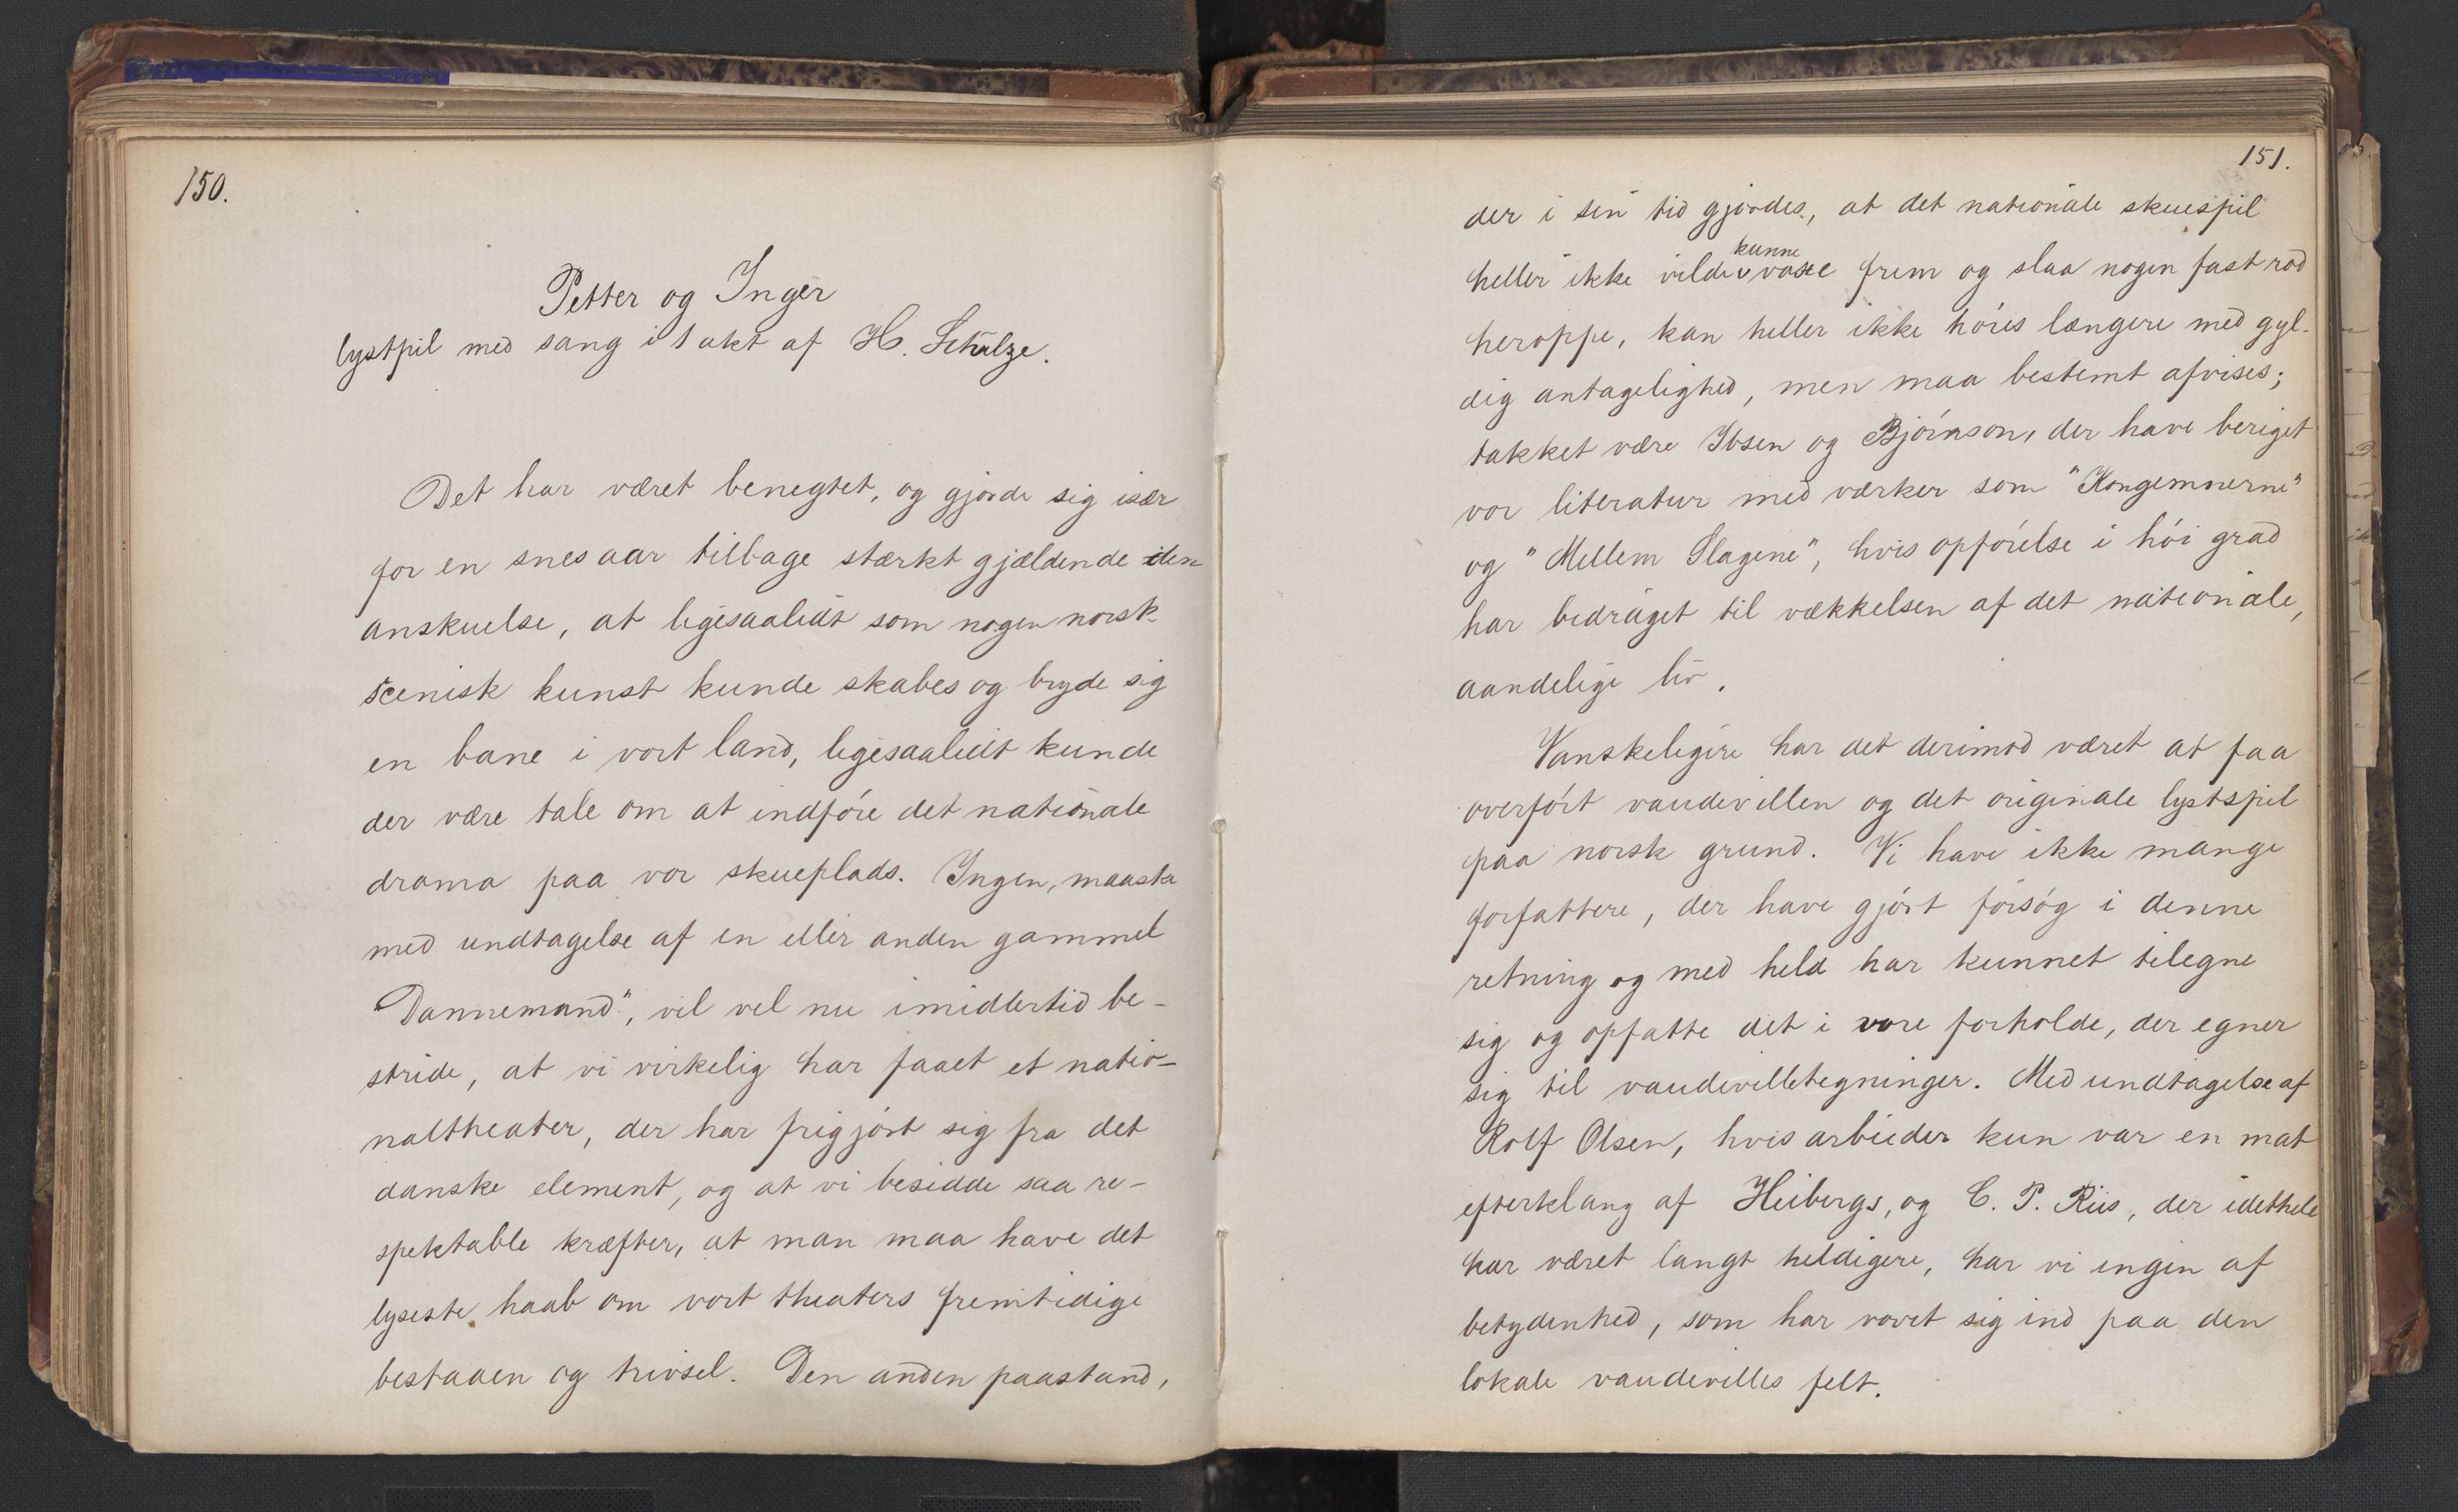 150.
Petter og Inger
lystpil med sang i 1 akt af H. Schulze.
Det har været benegtet, og gjorde sig især
for en snes aar tilbage stærkt gjældende den
anskuelse, at ligesaalidt som nogen norsk
scenisk kunst kunde skabes og bryde sig
en bane i vort land, ligesaalidt kunde
der være tale om at indføre det nationale
drama paa vor skueplads. Ingen, maaske
med undtagelse af en eller anden gammel
"Dannemand", vil vel nu imidlertid be-
stride, at vi virkelig har faaet et natio-
naltheater, der har frigjørt sig fra det
danske element, og at vi besidde saa re-
spektable kræfter, at man maa have det
lyseste haab om vort theaters fremtidige
bestaaen og trivsel. Den anden paastand,
151.
der i sin tid gjordes, at det nationale skuespil
heller ikke vilde kunne voxe frem og slaa nogen fast rod
heroppe, kan heller ikke høres længere med gyl-
dig antagelighed, men maa bestemt afvises;
takket være Ibsen og Bjørnson, der have beriget
vor literatur med værker som "Kongemnerne"
og "Mellem Slagene", hvis opførelse i høi grad
har bedraget til vækkelsen af det nationale,
aandelige liv.
Vanskeligere har det derimod været at faa
overført vaudevillen og det originale lystspil
paa norsk grund. Vi have ikke mange
forfattere, der have gjørt forsøg i denne
retning og med held har kunnet tilegne
sig og opfatte det i vore forholde, der egner
sig til vaudevilletegninger. Med undtagelse af
Rolf Olsen, hvis arbeider kun var en mat
efterklang af Heibergs, og C. P. Riis, der idethele
har været langt heldigere, har vi ingen af
betydenhed, som har vovet sig ind paa den
lokale vaudevilles felt.